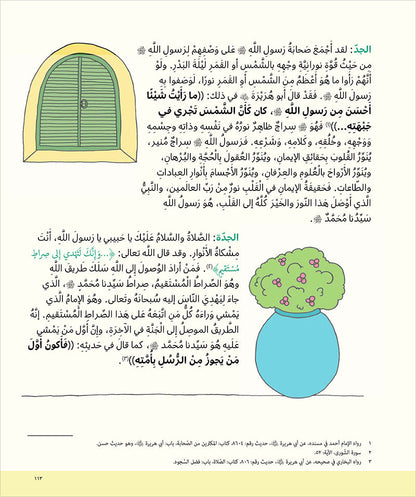 الجدّ: لقد أَجْمَعَ صَحابَةُ رَسولِ اللَّهِ ﷺ عَلى وَصْفِهِمْ لِرَسولِ اللَّهِ ﷺ
مِن حَيْثُ قُوَّة نورانِيَّةِ وَجْهِهِ بِالشَّمْسِ أَو القَمَرِ لَيْلَةَ البَدْرِ. وَلَوْ
أَنَّهُمْ رَأَوا ما هُوَ أَعْظَمُ مِنَ الشَّمْسِ أَوِ القَمَرِ نورًا، لَوَصَفوا بِهِ
رَسولَ اللَّهِ ﷺ. فَقَدْ قالَ أَبو هُرَيْرَةَ ﵁ في ذلِكَ: ((ما رَأَيْتُ شَيْئًا
أَحْسَنَ مِن رَسولِ اللَّهِ ﷺ، كان كَأَنَّ الشَّمْسَ تَجْري في
جَبْهَتِهِ...))(١) فَهُوَ ﷺ سِراجٌ ظاهِرٌ نورُهُ في نَفْسِهِ وَذاتِهِ وَجِسْمِهِ
وَوَجْهِهِ، وَخُلُقِهِ، وَكَلامِهِ، وَشَرْعِهِ. فَرَسولُ اللَّهِ ﷺ سِراجٌ مُنير،
يُنَوِّرُ القُلوبَ بِحَقائِقِ الإيمانِ، وَيُنَوِّرُ العُقولَ بِالحُجَّةِ وَالبُرْهانِ،
وَيُنَوِّرُ الأَرْواحَ بِالعُلومِ وَالعِرْفانِ، وَيُنَوِّرُ الأَجْسامَ بِأَنْوارِ العِباداتِ
وَالطّاعاتِ. فَحَقيقَةُ الإيمانِ في القَلْبِ نورٌ مِنْ رَبِّ العالَمين، وَالنَّبِيُّ
الَّذي أَوْصَلَ هَذا النّورَ وَالخَيْرَ كُلَّهُ إِلى القَلْبِ، هُوَ رَسولُ اللَّهِ
سَيِّدُنا مُحَمَّدٌ ﷺ.
الجدّة: الصَّلاةُ وَالسَّلامُ عَلَيْكَ يا حَبيبي يا رَسولَ اللَّهِ، أَنْتَ
مِشْكاةُ الأَنْوارِ. وَقد قال اللَّهُ تعالى: ﴿...وَإِنَّكَ لَتَهْدِي إِلَى صِرَاطٍ
مُسْتَقِيمٍ﴾(٢). فَمَنْ أَرادَ الوُصولَ إِلى اللَّهِ سَلَكَ طَريقَ اللَّهِ
وَهُوَ الصِّراطُ المُسْتَقيمُ، صِراطُ سَيِّدِنا مُحَمَّدٍ ﷺ، الَّذي
جاءَ لِيَهْدِيَ النّاسَ إِليه سُبحانَهُ وَتَعالى. وَهُوَ الإِمامُ الَّذي
يَمْشي وَراءَهُ كُلُّ مَنِ اتَّبَعَهُ عَلى هَذا الصِّراطِ المُسْتَقيمِ. إِنَّهُ
الطَّريقُ الموصِلُ إِلى الجَنَّةِ في الآخِرَةِ، وَإِنَّ أَوَّلَ مَنْ يَمْشي
عَلَيْهِ هُوَ سَيِّدُنا مُحَمَّد ﷺ، كَما قالَ في حَديثِهِ: ((فَأَكونُ أَوَّلَ
مَنْ يَجوزُ مِنَ الرُّسُلِ بِأُمَّتِهِ))(٣).
١ رواه الإمام أحمد في مسنده، عن أبي هريرة ﵁، حديث رقم: ٨٦٠٤، كتاب: المكثرين من الصّحابة، باب: أبي هريرة ﵁، وهو حديث حسن.
٢ سورة الشّورى، الآية: ٥٢.
٣ رواه البخاري في صحيحه، عن أبي هريرة ﵁، حديث رقم: ٨٠٦، كتاب: الصّلاة، باب: فضل السّجود.
١١٣